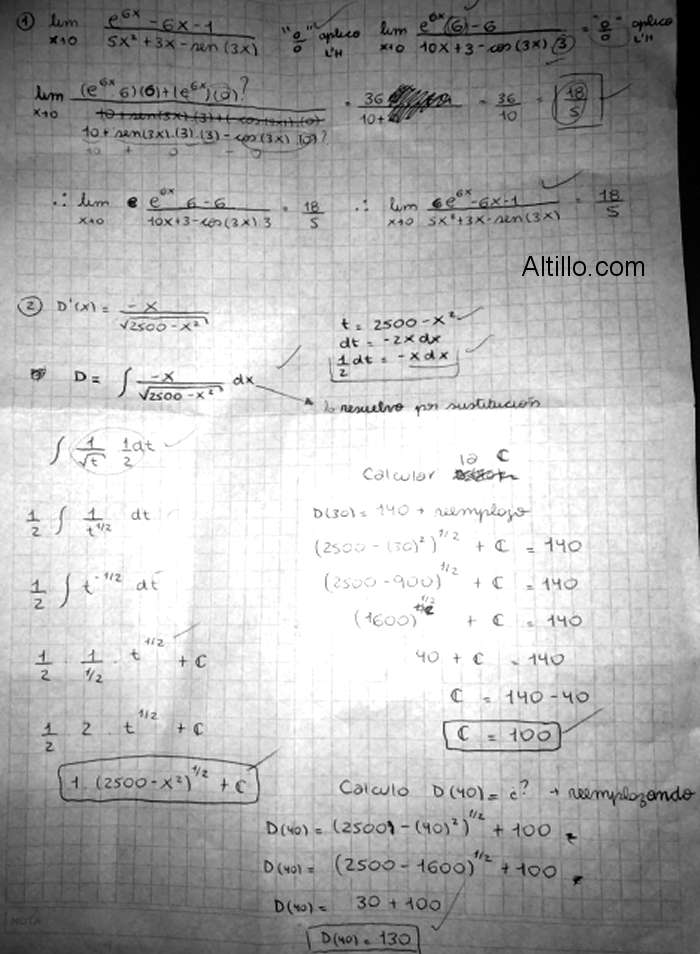 ① lim x→0 (e^6x - 6x - 1)/(5x² + 3x - sen(3x)) "0/0" aplico L'H lim x→0 (e^6x (6) - 6)/(10x + 3 - cos(3x) 3) = "0/0" aplico L'H
lim x→0 ((e^6x 6)(6) + (e^6x)(0)?)/(10 + sen(3x).(3).(3) - cos(3x).(0)?) = 36/10+ = 36/10 = 18/5
10 + 0 - 0
∴ lim x→0 (e^6x 6 - 6)/(10x + 3 - cos(3x) 3) = 18/5 ∴ lim x→0 (e^6x - 6x - 1)/(5x² + 3x - sen(3x)) = 18/5
Altillo.com
② D'(x) = -x/√(2500 - x²)
t = 2500 - x²
dt = -2x dx
1/2 dt = -x dx
D = ∫ -x/√(2500 - x²) dx
lo resuelvo por sustitución
∫ 1/√t 1/2 dt
1/2 ∫ 1/t^1/2 dt
1/2 ∫ t^-1/2 dt
1/2 . 1/1/2 . t^1/2 + C
1/2 2 . t^1/2 + C
1. (2500 - x²)^1/2 + C
Calcular la C
D(30) = 140 → reemplazo
(2500 - (30)²)^1/2 + C = 140
(2500 - 900)^1/2 + C = 140
(1600)^1/2 + C = 140
40 + C = 140
C = 140 - 40
C = 100
Calculo D(40) = ¿? → reemplazando
D(40) = (2500 - (40)²)^1/2 + 100
D(40) = (2500 - 1600)^1/2 + 100
D(40) = 30 + 100
D(40) = 130
NOTA